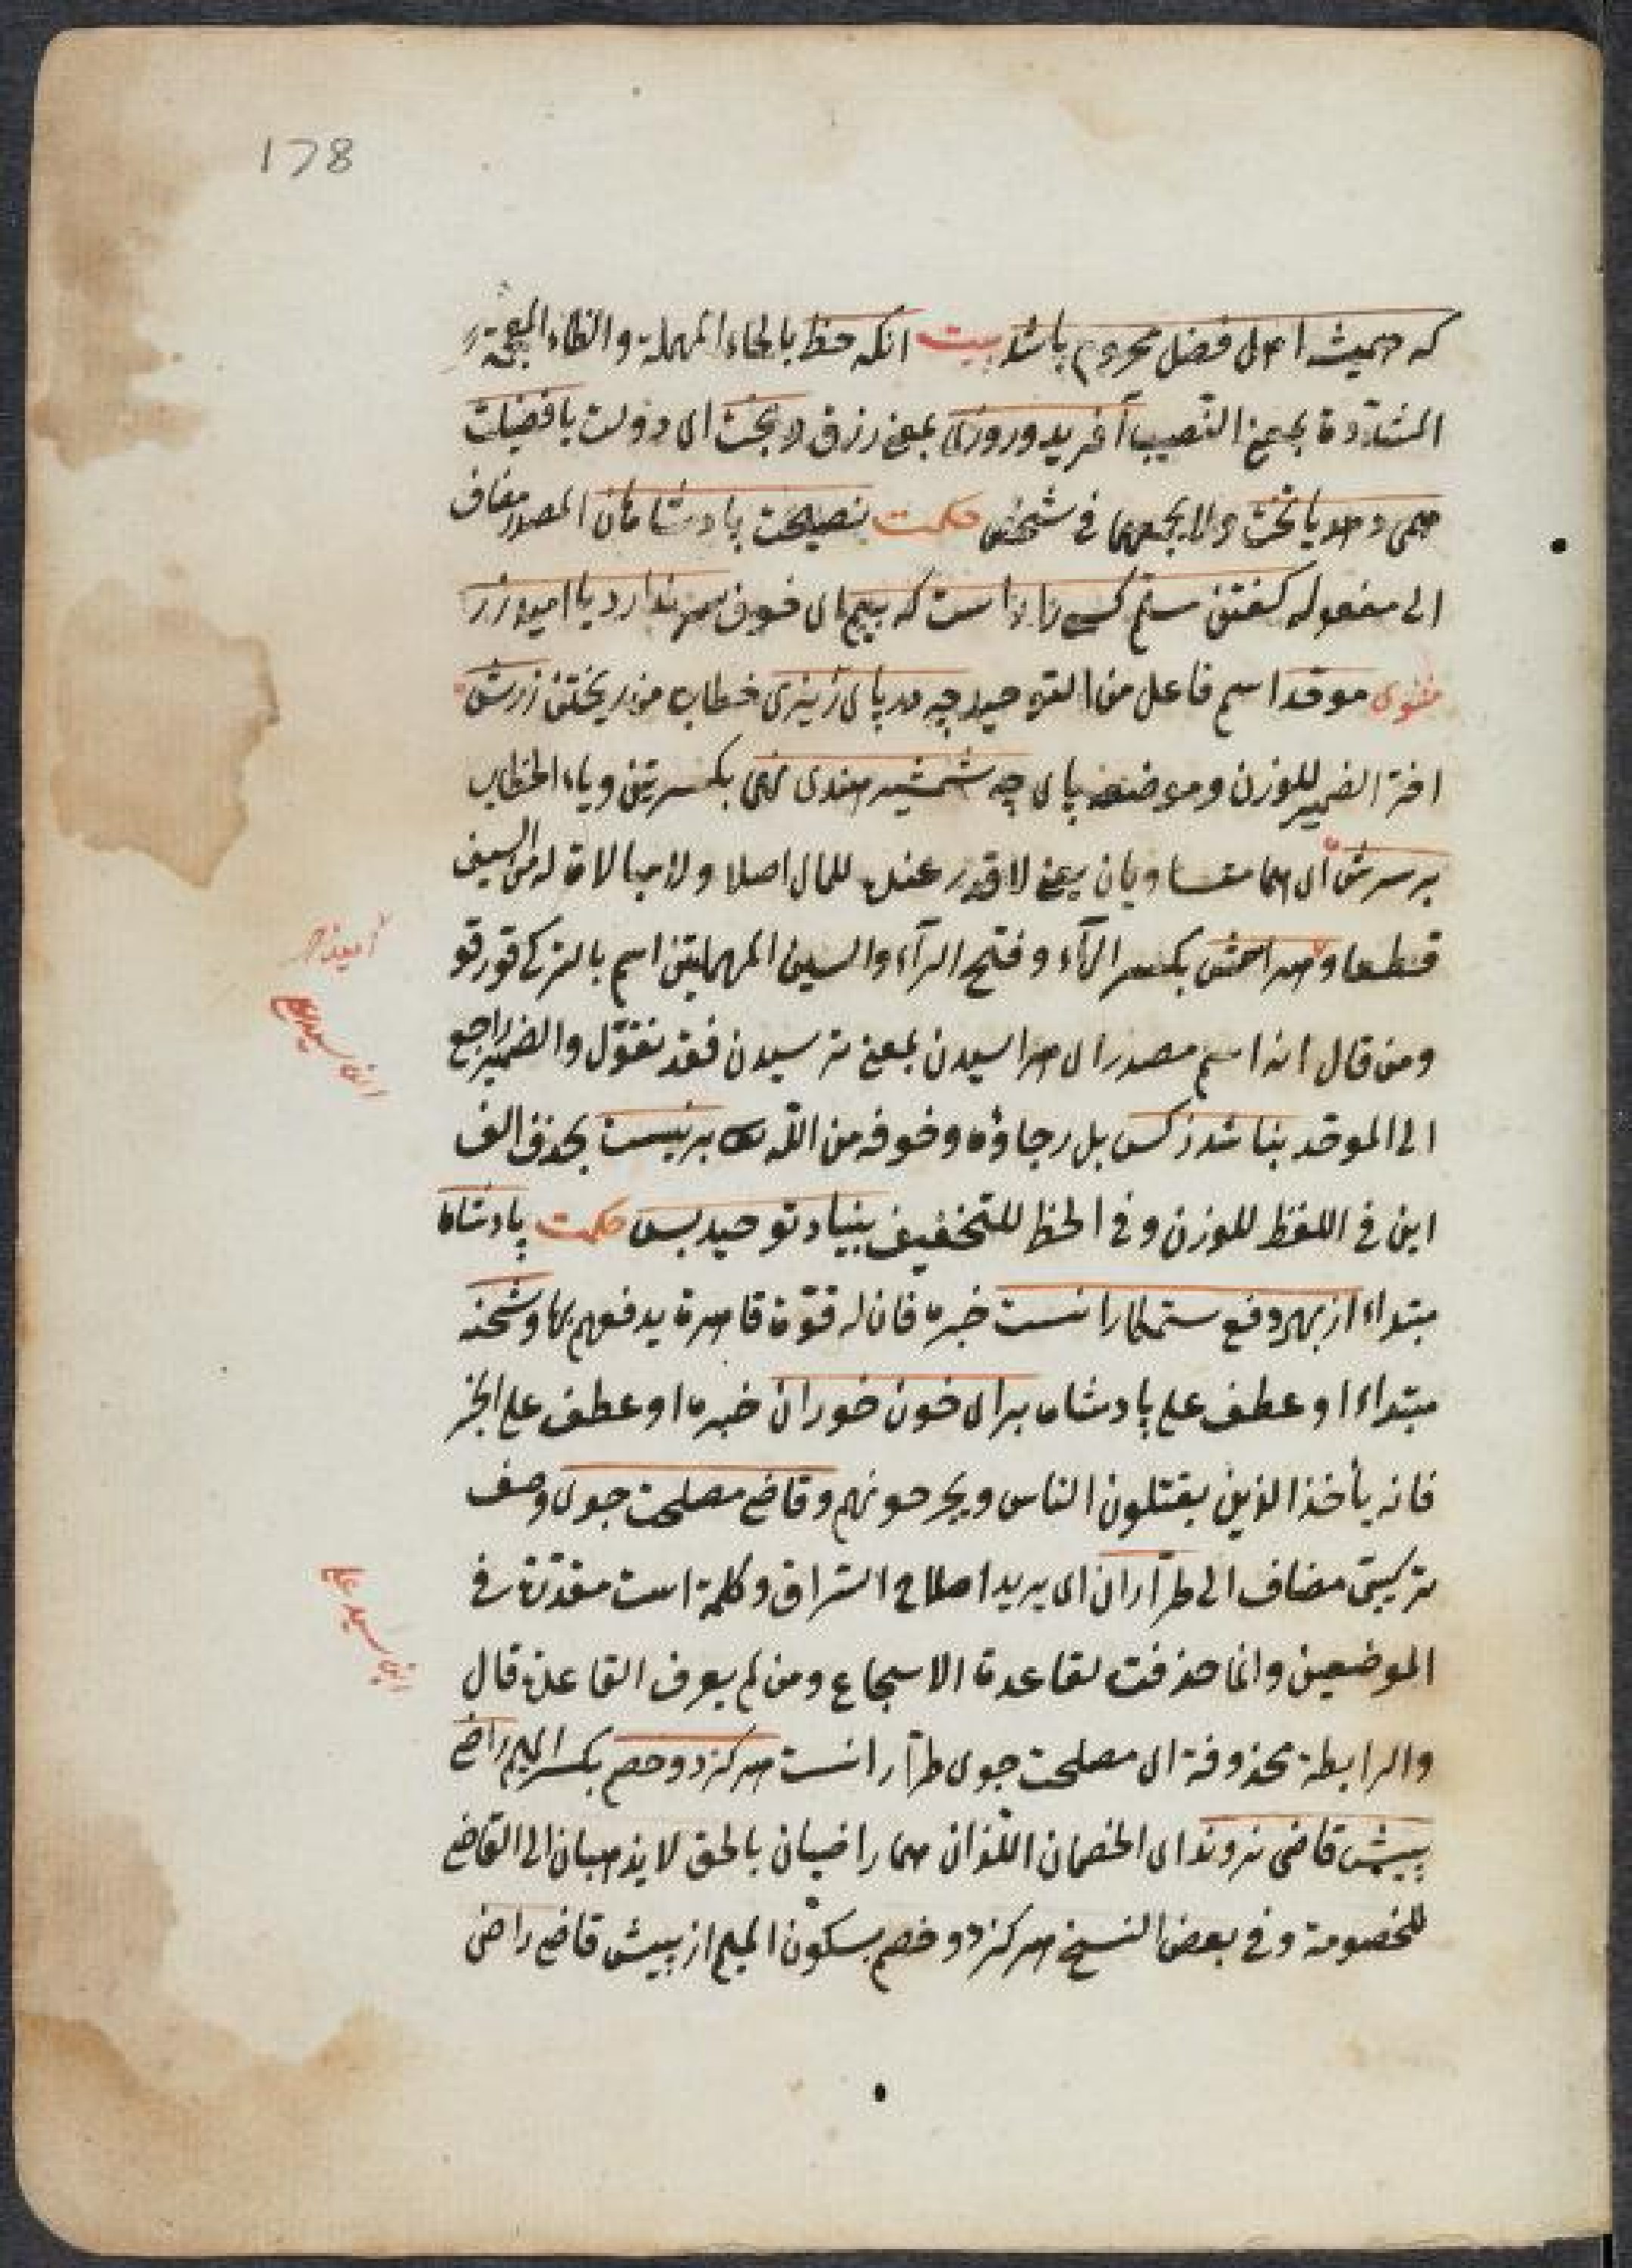 178
که همیشه اهل فضل محروم باشد بیت آنکه حظ بالحاء المهملة والظاء المعجمة
المشددة بمعنی النصیب آفرید وروزی بمعنی رزق لا بخت ای دولت یا فضیلت
همی دهد یا بخت ای لا یجمعهما فی شخص حکمت نصیحت پادشاهان المصدر مضاف
الی مفعوله گفتن مسلم کسی را است که بیم ای خوف سر ندارد یا امید زر
مثنوی موحد اسم فاعل من التوحید چه در پای ریزی خطاب من ریختن زرش
اخر الضمیر للوزن وموضعه پای چه شمشیر هندی نهی بکسرتین ویاء الخطاب
بر سرش ای هما متساویان یعنی لا قدر عنده للمال اصلا ولا مبالاة له من السیف
قطعا وهراسش بکسر الهاء وفتح الراء والسین المهملتین اسم بالترکی قورقو
ومن قال انه اسم مصدر ای هراسیدن بمعنی ترسیدن فقد تقول والضمیر راجع
الی الموحد نباشد ز کس بل رجاؤه وخوفه من الله برینست بحذف الف
این فی اللفظ للوزن وفی الخط للتخفیف بنیاد توحید بس حکمت پادشاه
مبتداء از بهر دفع ستمکارانست خبره فان له قوة قاهرة یدفعهم بها وشحنه
مبتداء او عطف علی پادشاه برای خون خوران خبره او عطف علی الخبر
فانه یأخذ الذین یقتلون الناس ویجرحونهم وقاضی مصلحت جوی وصف
ترکیبی مضاف الی طراران ای یرید اصلاح السراق وکلمة است مقدرة فی
الموضعین وانما حذفت لقاعدة الاسجاع ومن لم یعرف القاعدة قال
والرابطة محذوفة ای مصلحت جوی طرارانست هرگز دو خصم بکسر المیم راضی
پیش قاضی نروند ای الخصمان اللذان هما راضیان بالحق لا یذهبان الی القاضی
للخصومة وفی بعض النسخ هرگز دو خصم بسکون المیم از پیش قاضی راضی